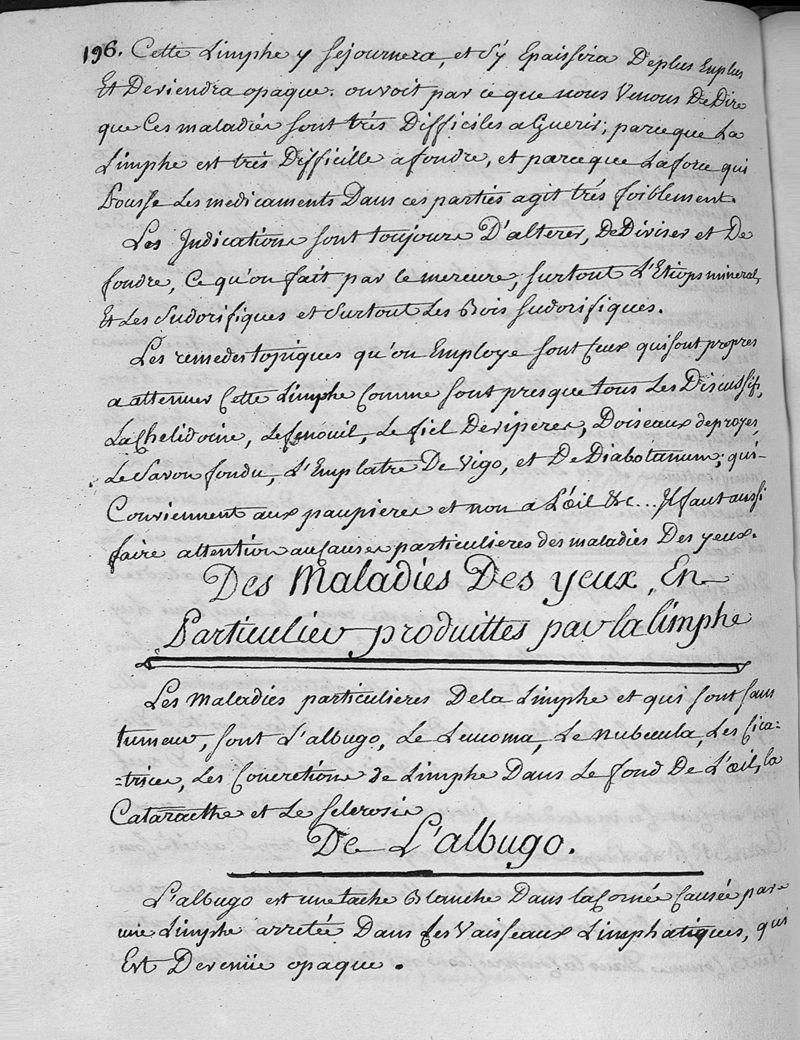 196. Cette Limphe y sejournera, et s'y Epaissira Deplus Enplus
Et Deviendra opaque. on voit par ce que nous Venons De Dire
que Ces maladies sont très Difficiles a Guerir; parceque La
Limphe est très Difficille a fondre, et parceque La force qui
Pousse Les medicaments Dans ces parties agit très foiblement.
Les Indications sont toujours D'alterer, De Diviser et De
fondre, Ce qu'on fait par le mercure, surtout L'Etiops mineral,
Et Les Sudorifiques et Surtout Les Bois Sudorifiques.
Les remedes topiques qu'on Employe sont Ceux qui sont propres
a attenuer Cette Limphe Comme sont presque tous Les Discussifs,
La Chelidoine, Le fenouil, Le fiel De viperes, D'oiseaux de proyes,
Le Savon fondu, L'Emplatre De Vigo, et De Diabotanum; qui
Conviennent aux paupieres et non a L'œil &c... Il faut aussi
faire attention au Causes particulieres des maladies Des yeux.
Des Maladies Des yeux, En
Particulier produittes par la limphe
Les Maladies particulieres De la Limphe et qui sont sans
tumeur, sont L'albugo, Le Leucoma, Le nubecula, Les Cica=
=trices, Les Concretions de Limphe Dans Le fond De L'œil, la
Cataracthe et Le Sclerosis
De L'albugo.
L'albugo est une tache Blanche Dans la Cornée Causée par
une Limphe arretée Dans ses Vaisseaux Limphatiques, qui
Est Devenüe opaque.